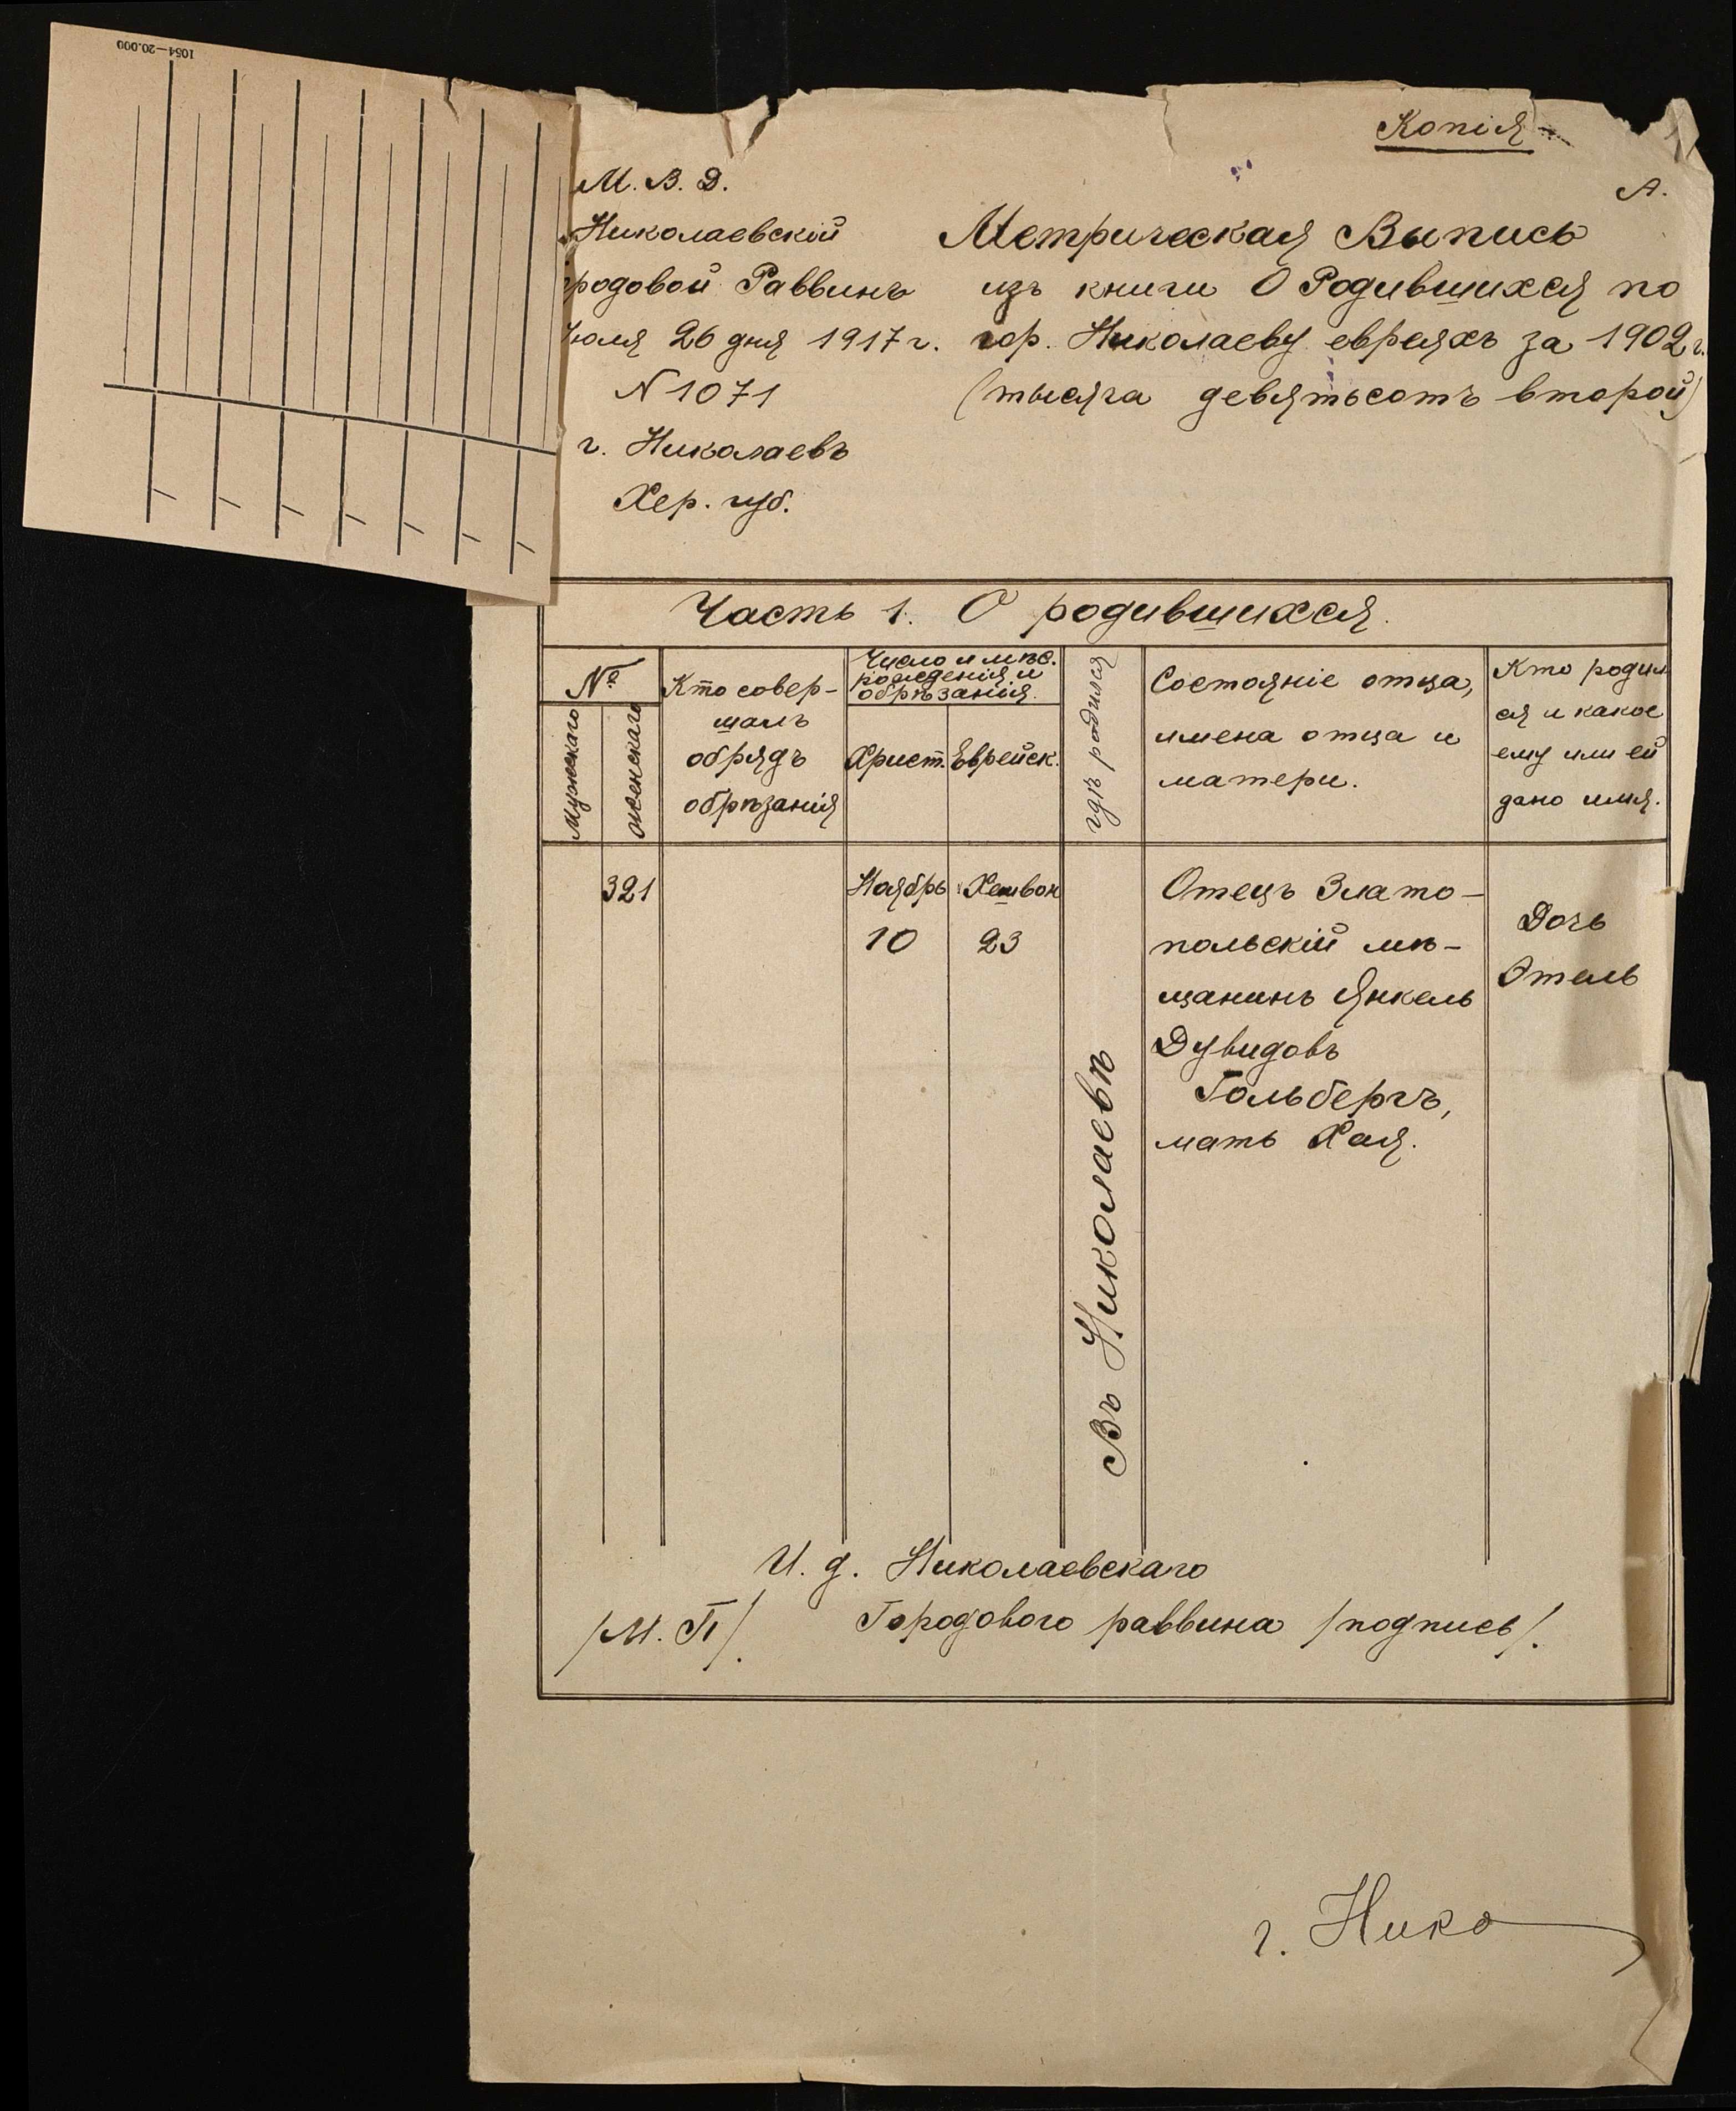 1054—20.000
Копія
А.
М. В. Д.
Николаевскій
родовой Раввинъ
Іюля 26 дня 1917 г.
N 1071
г. Николаевъ
Хер. губ.
Метрическая Выпись
изъ книги О Родившихся по
гор. Николаеву евреяхъ за 1902 г.
(тысяча девятьсотъ второй)
Часть 1. О родившихся.
№
Мужескаго
женскаго
Кто совер-
шалъ
обрядъ
обрѣзанія
Число и мѣс.
рожденія и
обрѣзанія.
Христ.
Еврейск.
гдѣ родился
Состояніе отца,
имена отца и
матери.
Кто родил
ся и какое
ему или ей
дано имя.
321
Ноябрь
10
Хешвон
23
Въ Николаевѣ
Отецъ Злато-
польскій мѣ-
щанинъ Янкель
Дувидовъ
Гольбергъ,
мать Хая.
Дочь
Этель
И. д. Николаевскаго
/М. П/.
Городового раввина /подпись/.
г. Нико